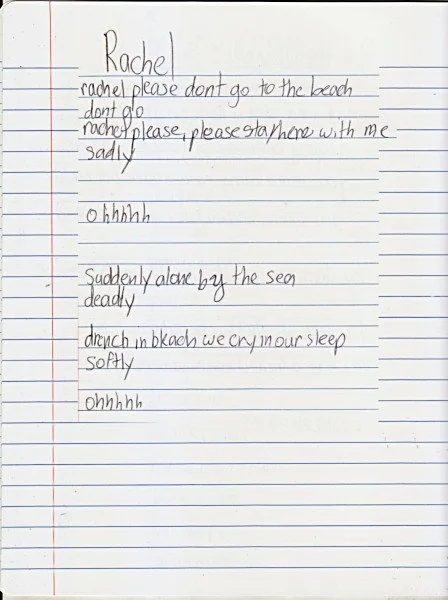 Rachel
rachel please dont go to the beach
dont go
rachel please, please stay here with me
sadly
ohhhhh
Suddenly alone by the sea
deadly
drench in bkach we cry in our sleep
softly
ohhhhh